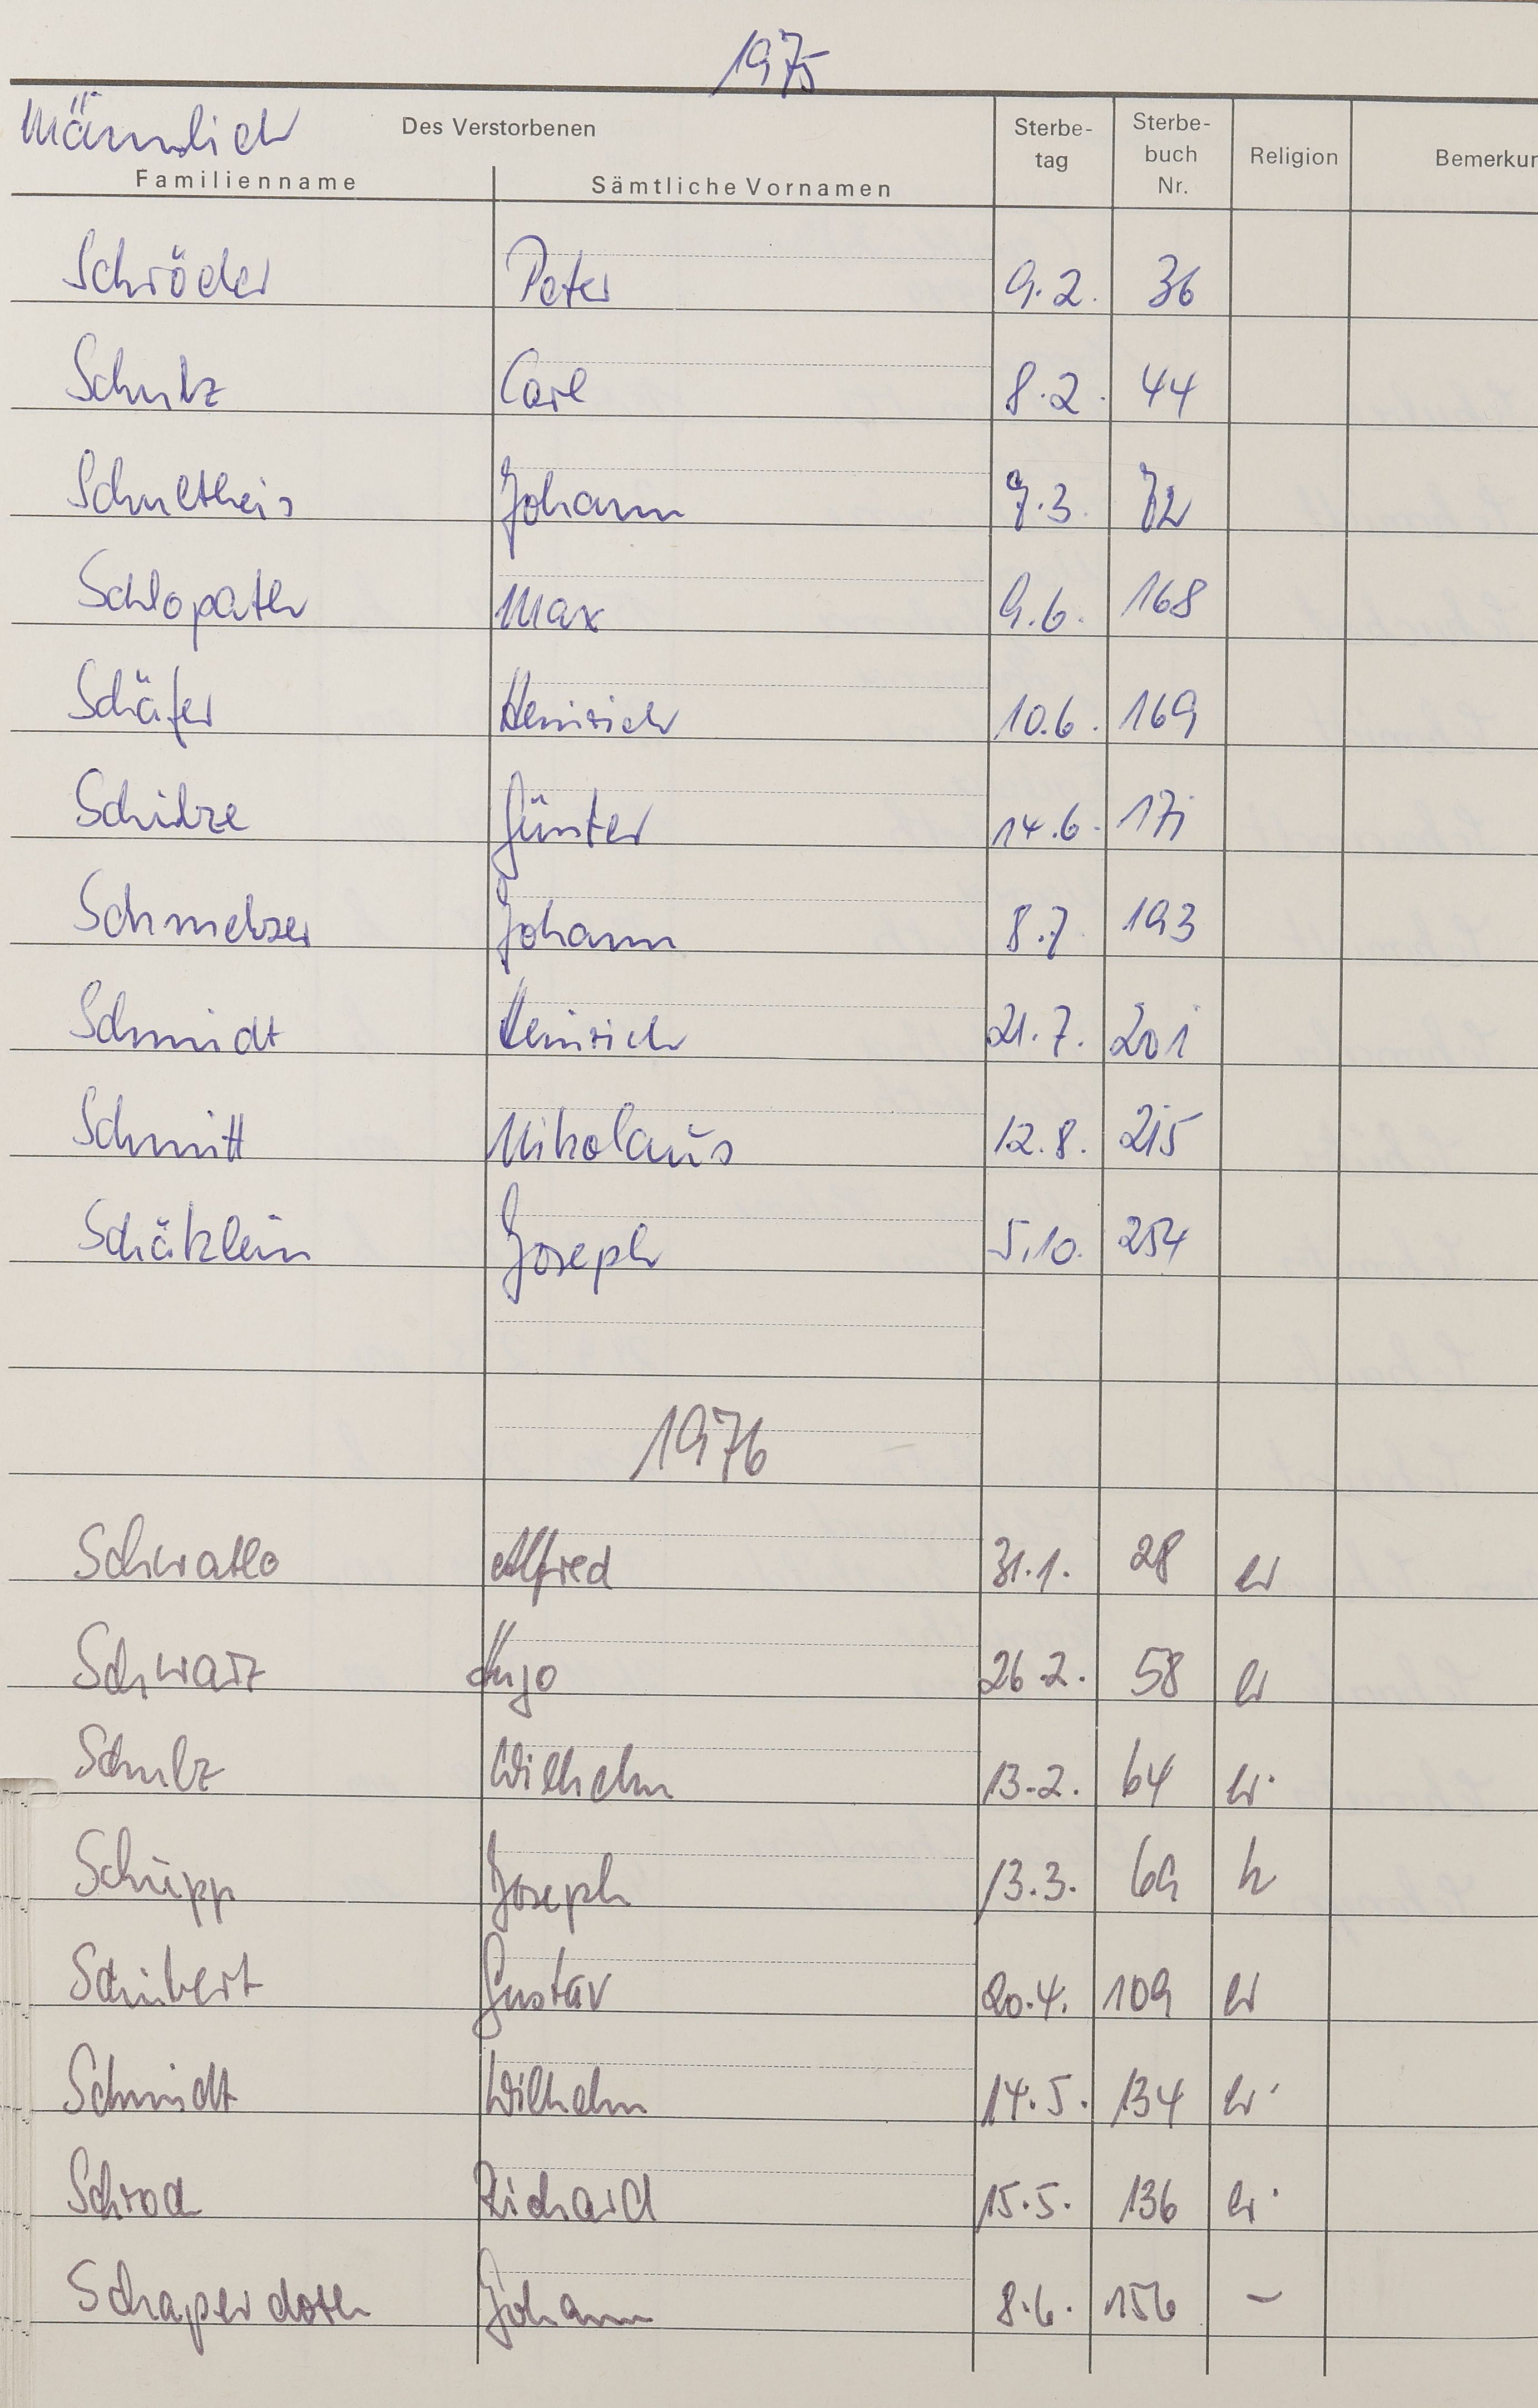 1975
Männlich
Des Verstorbenen
Familienname Sämtliche Vornamen Sterbe-tag Sterbe-buch Nr. Religion Bemerkun
Schröder Peter 9.2. 36
Schulz Carl 8.2. 44
Schultheis Johann 7.3. 72
Max 9.6. 168
Schäfer Heinrich 10.6. 169
Schilze Günter 14.6. 171
Schmelzer Johann 8.7. 193
Schmidt Heinrich 21.7. 201
Schmitt Nikolaus 12.8. 215
Schätzlein Joseph 5.10. 254
1976
Alfred 31.1. 28 ev
Schwarz Hugo 26.2. 58 ev
Schulz Wilhelm 13.2. 64 ev.
Schüpp Joseph 13.3. 69 k
Schubert Gustav 20.4. 109 ev
Schmidt Wilhelm 14.5. 134 ev.
Schrod Richard 15.5. 136 ev.
Schaperdoth Johann 8.6. 156 –